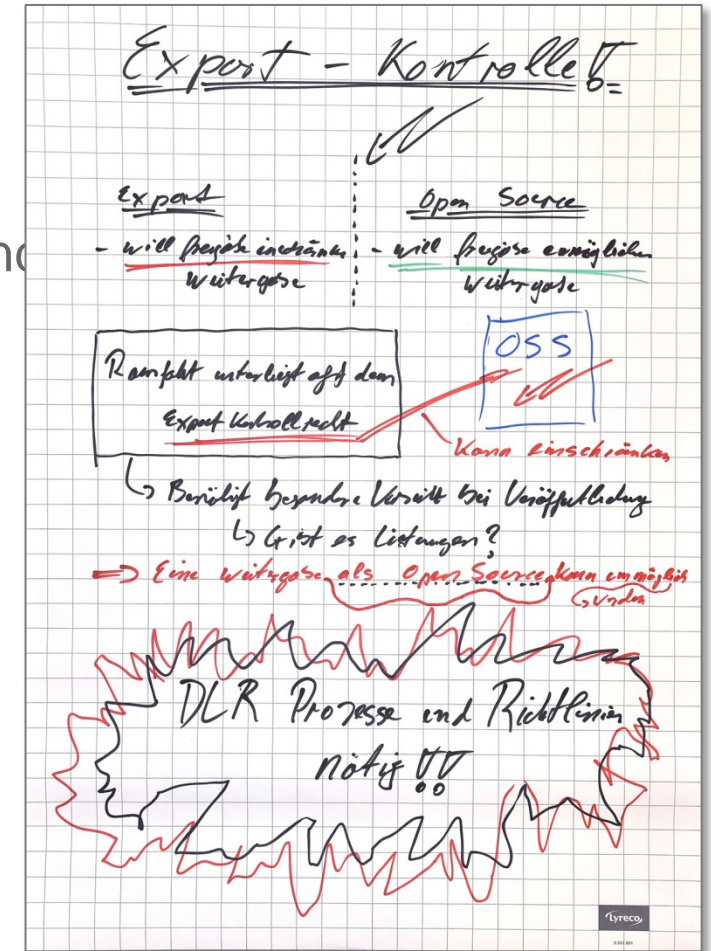 Export - Kontrolle!
Export
- will freigabe einschränken
Weitergabe
Open Source
- will freigabe ermöglichen
Weitergabe
Raumfahrt unterliegt oft dem
Export Kontrollrecht
OSS
Kann einschränken
↳ Benötigt besondere Vorsicht bei Veröffentlichung
↳ Gibt es Listungen?
=> Eine weitergabe als Open Source kann unmöglich
werden
DLR Prozesse und Richtlinien
nötig!!
Lyreco